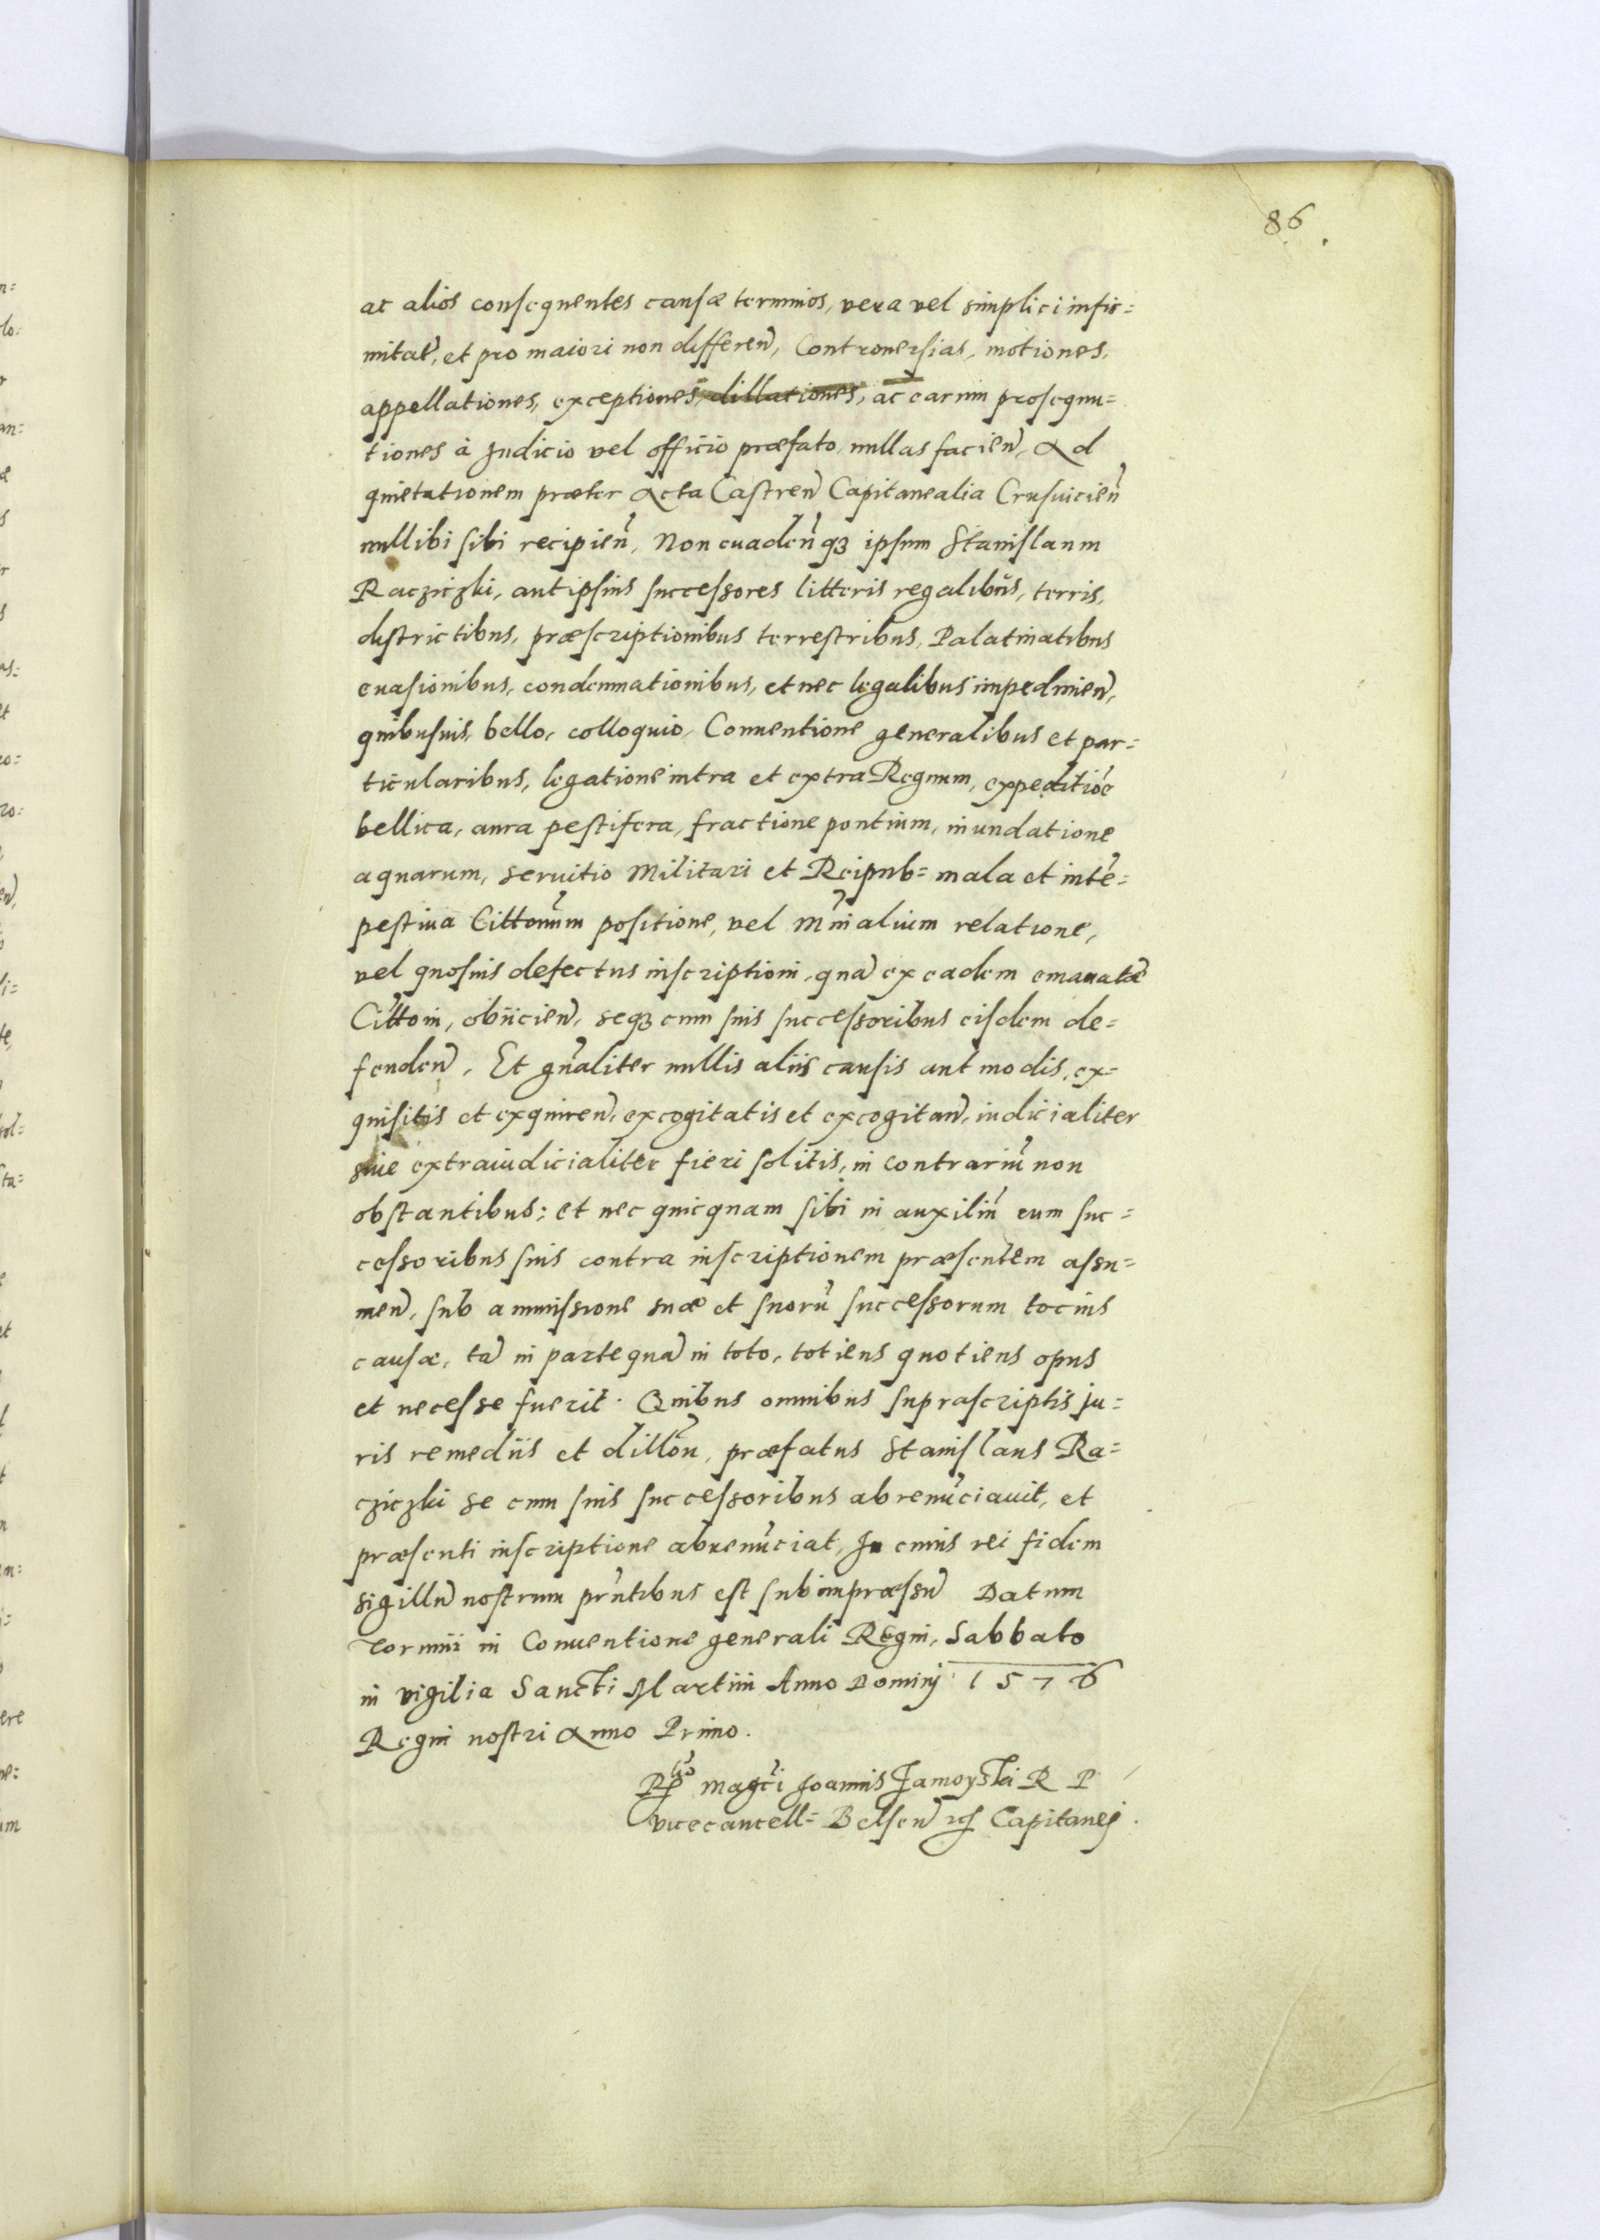 86
ac alios consequentes causæ terminos, vera vel simplici infir=
mitat̃, et pro maiori non differeñ, Controuersias, motiones,
appellationes, exceptiones, dillationes, ac earum prosequu=
tiones à Judicio vel officio præfato nullas facieñ, Ad
quietationem præter Acta Castreñ Capitanealia Crusuicieñ
nullibi sibi recipieñ, Non euadeñqꝫ ipsum Stanislaum
Racziczki, aut ipsius successores litteris regalibus, terris,
districtibus, præscriptionibus terrestribus, Palatinatibus
euasionibus, condemnationibus, et nec legalibus impedimeñ,
quibusuis, bello, colloquio, Conuentione generalibus et par=
ticularibus, legatione intra et extra Regnum, expeditiõe
bellica, aura pestifera, fractione pontium, inundatione
aquarum, seruitio Militari et Reipub= mala et inte̴=
pestiua Citton̴um positione, vel M̃inalium relatione,
vel quosuis defectus inscriptioni, quã ex eadem emanatæ
Citt̃oni, obiicieñ, seqꝫ cum suis successoribus eisdem de=
fendeñ. Et gñaliter nullis aliis causis aut modis, ex=
quisitis et exquireñ, excogitatis et excogitañ, iudicialiter
siue extraiudicialiter fieri solitis, in contrariũ non
obstantibus: et nec quicquam sibi in auxiliũ cum suc=
cessoribus suis contra inscriptionem præsentem assu=
meñ, sub ammissione suæ et suorũ successorum tocius
causæ, tã in parte quã in toto, totiens quotiens opus
et necesse fuerit. Quibus omnibus suprascriptis ju=
ris remediis et dillõñ, præfatus Stanislaus Ra=
cziczki se cum suis successoribus abrenũciauit, et
præsenti inscriptione abrenũciat, In cuius rei fidem
sigillũ nostrum pr̃ntibus est subimpræssũ Datum
Torunii in Conuentione generali Regni, Sabbato
in vigilia Sancti Martini Anno Dominj 1576
Regni nostri Anno Primo.
magc̃i Joannis Zamoyski R P
vicecancell= Belseñ Capitanej.